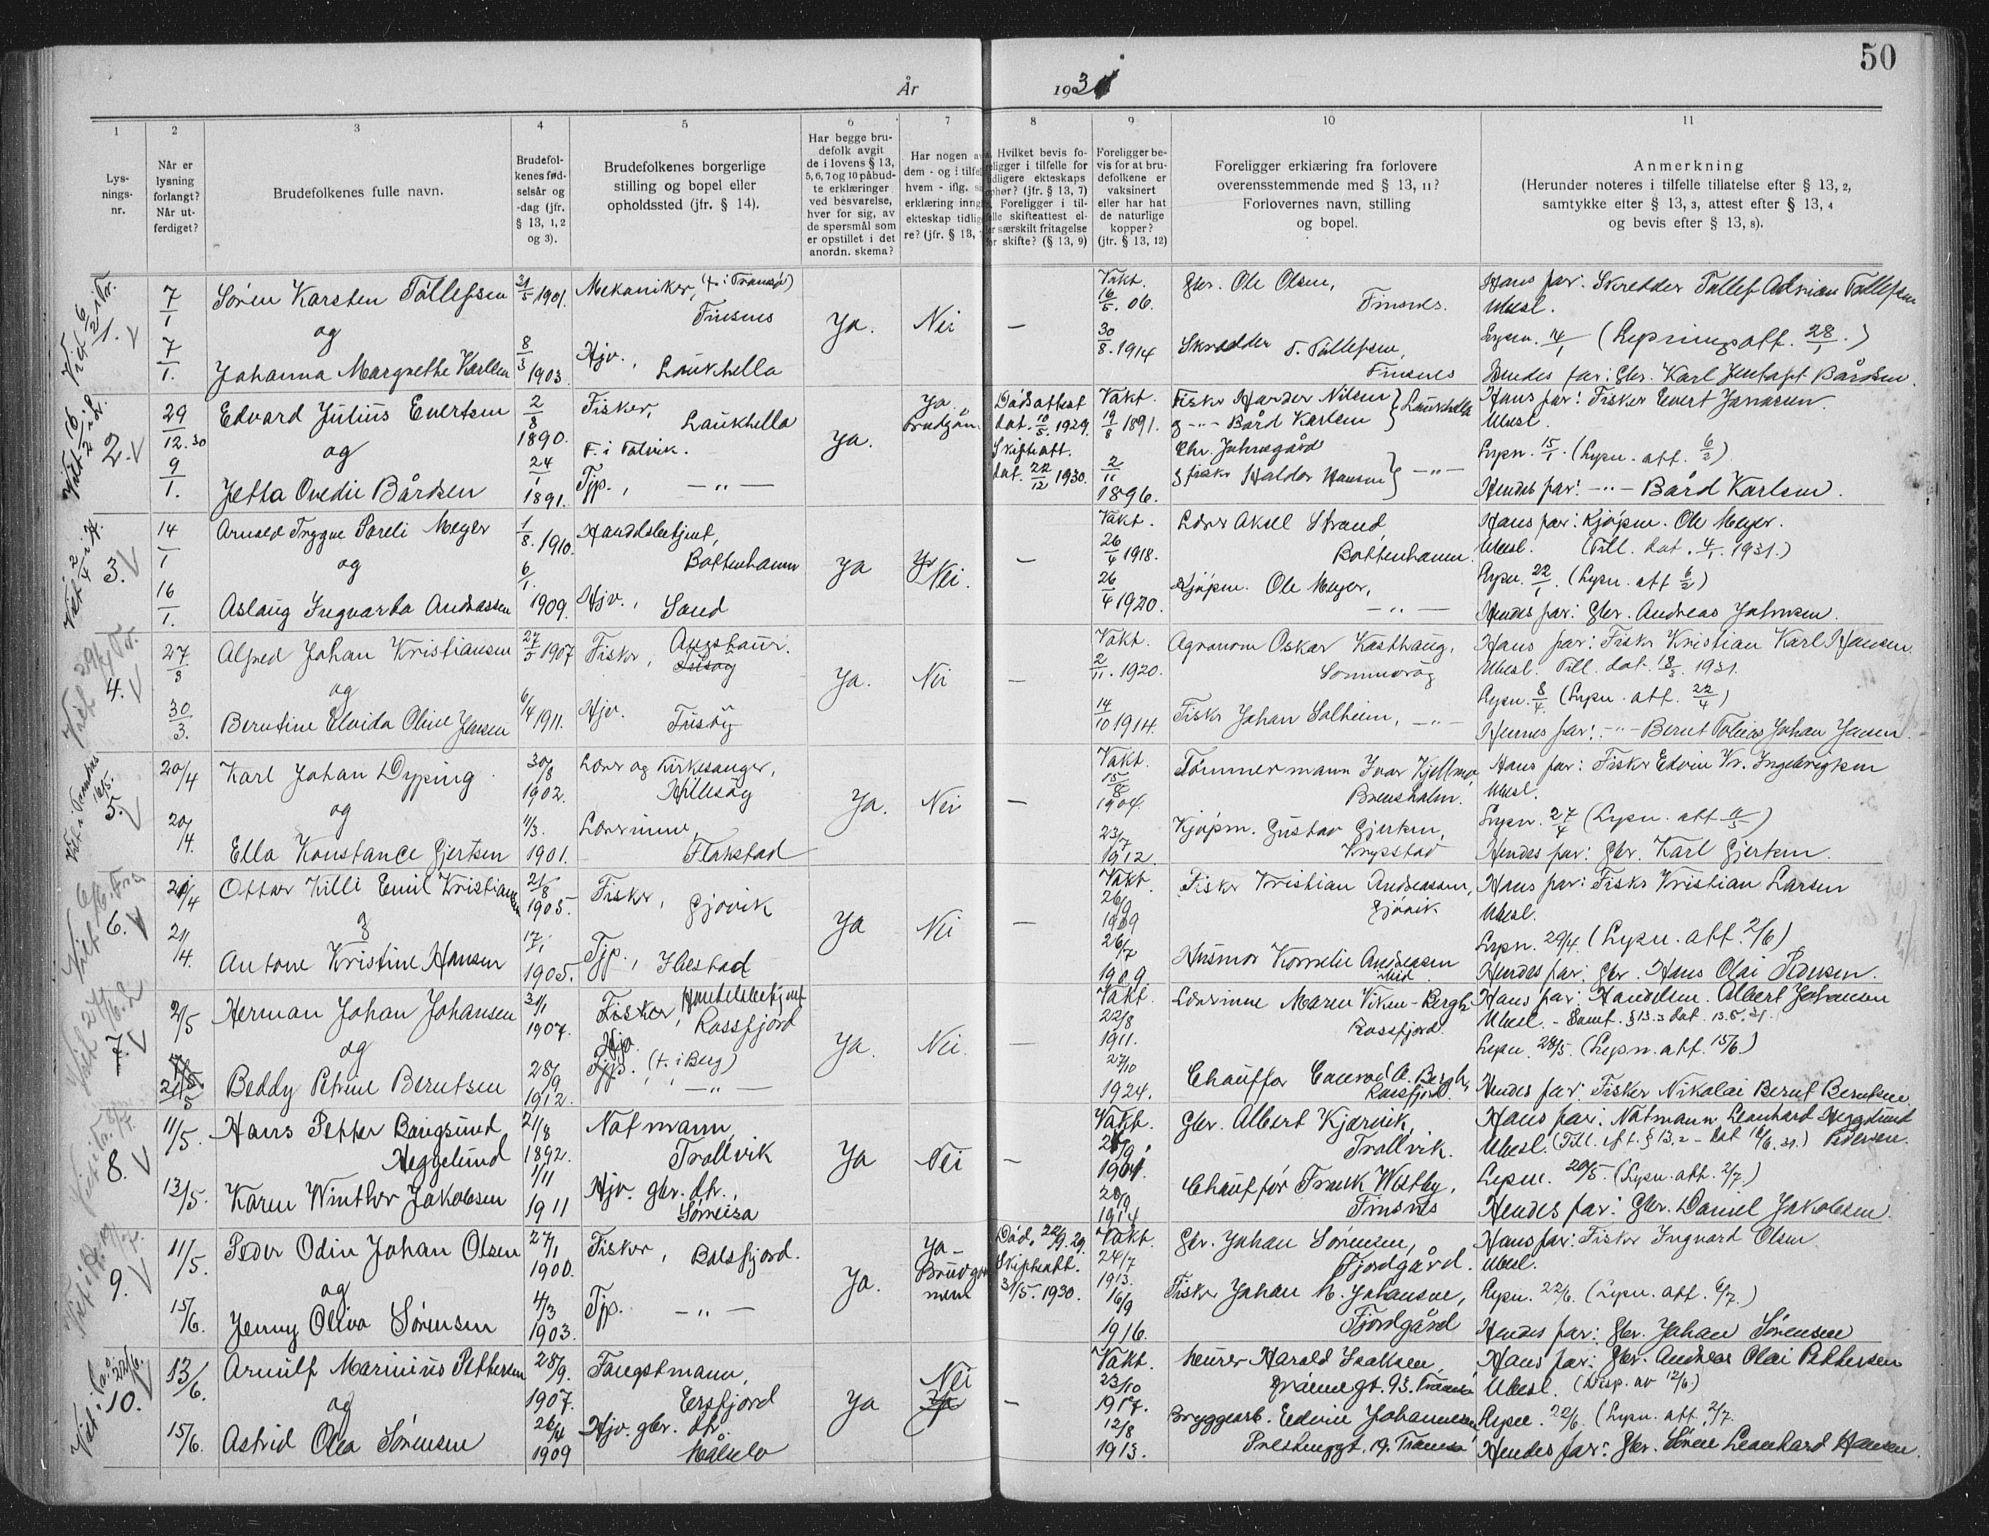 50
År 1931
1 2 3 4 5 6 7 8 9 10 11
Lysningsnr.
Når er lysning forlangt? Når utferdiget?
Brudefolkenes fulle navn.
Brudefolkenes fødselsår og -dag (jfr. § 13, 1, 2 og 3).
Brudefolkenes borgerlige stilling og bopel eller opholdssted (jfr. § 14).
Har begge brudefolk avgit de i lovens § 13, 5, 6, 7 og 10 påbudte erklæringer ved besvarelse, hver for sig, av de spørsmål som er opstillet i det anordn. skema?
Foreligger bevis for at brudefolkene er vaksinert eller har hat de naturlige kopper? (jfr. § 13, 12)
Foreligger erklæring fra forlovere overensstemmende med § 13, 11? Forlovernes navn, stilling og bopel.
Anmerkning (Herunder noteres i tilfelle tillatelse efter § 13, 2, samtykke efter § 13, 3, attest efter § 13, 4 og bevis efter § 13, 8).
1.
7/1 Søren Karsten Tollefsen 1901. Mekaniker, (f. i Tromsø) Finsnes
og Ja. Nei —
7/1. Johanna Margrethe Karlsen 8/3 1903. Hjv., Laukhella
Vakt. 16/5. 06. Gbr. Ole Olsen, Finsnes.
30/8. 1914 Skrædder T. Tollefsen, Finsnes
Hans far: Skredder Tollef Adrian Tollefsen
Ubesl.
Lysn. 14/1 (Lysningsatt. 28/1.)
Hendes far: Gbr. Karl Bårdsen.
2.
29/12.30 Edvard Julius Evertsen 2/8 1890. Fisker, Laukhella
og F. i Talvik. Ja.
9/1. Jetta Ovedie Bårdsen 24/1 1891. Tjp., — " —
Ja Brudgom
Dødsattest dat. 10/5. 1929.
Skifteatt. dat. 22/12 1930.
Vakt. 19/8 1891. Fisker Harder Nilsen
g — " — Bård Karlsen } Laukhella
2/11 1896. Chr. Johnsgård
g fisker Haldor Hansen } — " —
Hans far: Fisker Evert Jensen.
Ubesl.
Lysn. 15/1. (Lysn. att. 6/2)
Hendes far: — " — Bård Karlsen.
3.
14/1 Arnold Tryggve Soreli Meyer 1/8. 1910. Handelsbetjent, Bottenhavn
og Ja Nei. —
16/1. Aslaug Ingvarda Andreassen 6/1. 1909. Hjv., Sand
Vakt. 26/4 1918. Lærer Aksel Strand, Bottenhavn
26/4 1920. Kjøpm. Ole Meyer, — " —
Hans far: Kjøpm. Ole Meyer.
Ubesl. (Till. dat. 4/1. 1931.)
Lysn. 22/1. (Lysn. att 6/2)
Hendes far: Gbr. Andreas Johnsen.
4.
27/3 Alfred Johan Kristiansen 27/5 1907 Fisker, Angstaur.
og Ja. Nei —
30/3. Berntine Elvida Oline Jensen 6/4 1911. Hjv. Husøy
Vakt. 2/11. 1920. Agronom Oskar Kasthaug, Sommerøy
14/10 1914. Fisker Johan Solheim, — " —
Hans far: Fisker Kristian Karl Hansen.
Ubesl. Till. dat. 18/3. 1931.
Lysn. 8/4. (Lysn. att. 22/4)
Hennes far: — " — Bernt Tobias Johan Jensen.
5.
20/4 Karl Johan Dyping. 30/8 1902. Lærer og Kirkesanger, Hillesøy
og Ja. Nei —
20/4. Ella Konstance Gjertsen 11/3. 1901. Lærerinne, Flakstad
Vakt. 15/8 1904. Tømmermann Ivar Kjellmo, Brensholm.
23/7 1912. Kjøpm. Gustav Gjertsen, Krysstad
Hans far: Fisker Edvin Kr. Ingebrigtsen
Ubesl.
Lysn. 27/4 (Lysn. att 11/5)
Hendes far: Gbr. Karl Gjertsen.
6.
21/4 Ottar Killi Emil Kristiansen 21/8 1905. Fisker, Gjøvik
g Ja Nei —
21/4. Antone Kristine Hansen 17/1 1905. Tjp., Ibestad
Vakt. 26/9 1909 Fisker Kristian Andreassen, Gjøvik
26/7 1909. Husmor Kornelie Andreassen
Hans far: Fisker Kristian Larsen
Ubesl.
Lysn. 29/4. (Lysn. att. 2/6)
Hendes far: Gbr. Hans Olai Pedersen.
7.
2/5 Herman Johan Johansen 31/1 1907. Fisker, Handelsbetjent Rossfjord
og Ja. Nei. —
21/5 Beddy Petrine Berntsen 28/9 1912. Hjv. Tjp. (f. i Berg) — " —
Vakt. 22/8 1911. Lærerinne Maren Viken-Bergh, Rossfjord
27/10 1924. Chauffør Conrad A. Bergh, Rossfjord.
Hans far: Handelsm. Albert Johansen
Ubesl. - Samt. § 13.3 dat. 13.5.31.
Lysn. 28/5. (Lysn. att. 15/6.)
Hendes far: Fisker Nikolai Bernt Berntsen
8.
11/5. Hans Petter Bangsund Heggelund 21/8 1892. Notmann, Trollvik
Ja Nei —
13/5. Karen Winther Jakobsen 1/11 1911 Hjv. gbr. dtr. Sørreisa
Vakt. 1901. Gbr. Albert Kjærvik, Trollvik.
20/9 1914 Chauffør Frank Westby, Finsnes
Hans far: Notmann Leonhard Heggelund Pedersen.
Ubesl. (Till. eft. § 13.2 - dat 16/6. 31.)
Lysn. 20/5. (Lysn. att. 2/7.)
Hendes far: Gbr. Daniel Jakobsen.
9.
11/5. Peder Odin Johan Olsen 27/1 1900. Fisker, Balsfjord.
og Ja.
15/6. Jenny Oliva Sørensen 4/3 1903. Tjp. — " —
Ja - Brudgommen
Død. 22/9. 29.
Skifteatt. 31/5. 1930.
Vakt. 24/7 1913. Gbr. Johan Sørensen, Fjordgård.
16/9 1916. Fisker Johan M. Johansen, Fjordgård
Hans far: Fisker Ingvard Olsen
Ubesl.
Lysn. 22/6. (Lysn. att. 6/7.)
Hendes far: Gbr. Johan Sørensen
10.
13/6. Arnulf Marinius Pettersen 28/9. 1907. Fangstmann, Ersfjord
og Ja Nei —
15/6. Astrid Olea Sørensen 26/4 1909 Hjv. gbr. dtr. Målselv
Vakt. 23/10 1917. Murer Harald Isaksen, Grønnegt. 93. Tromsø
12/8 1913. Bryggearb. Edvin Johannesen Prestenggt. 19. Tromsø
Hans far: Gbr. Andreas Olai Pettersen
Ubesl. (Disp. av 12/6)
Lysn. 22/6. (Lysn. att. 2/7.
Hendes far: Gbr. Søren Leonhard Hansen.